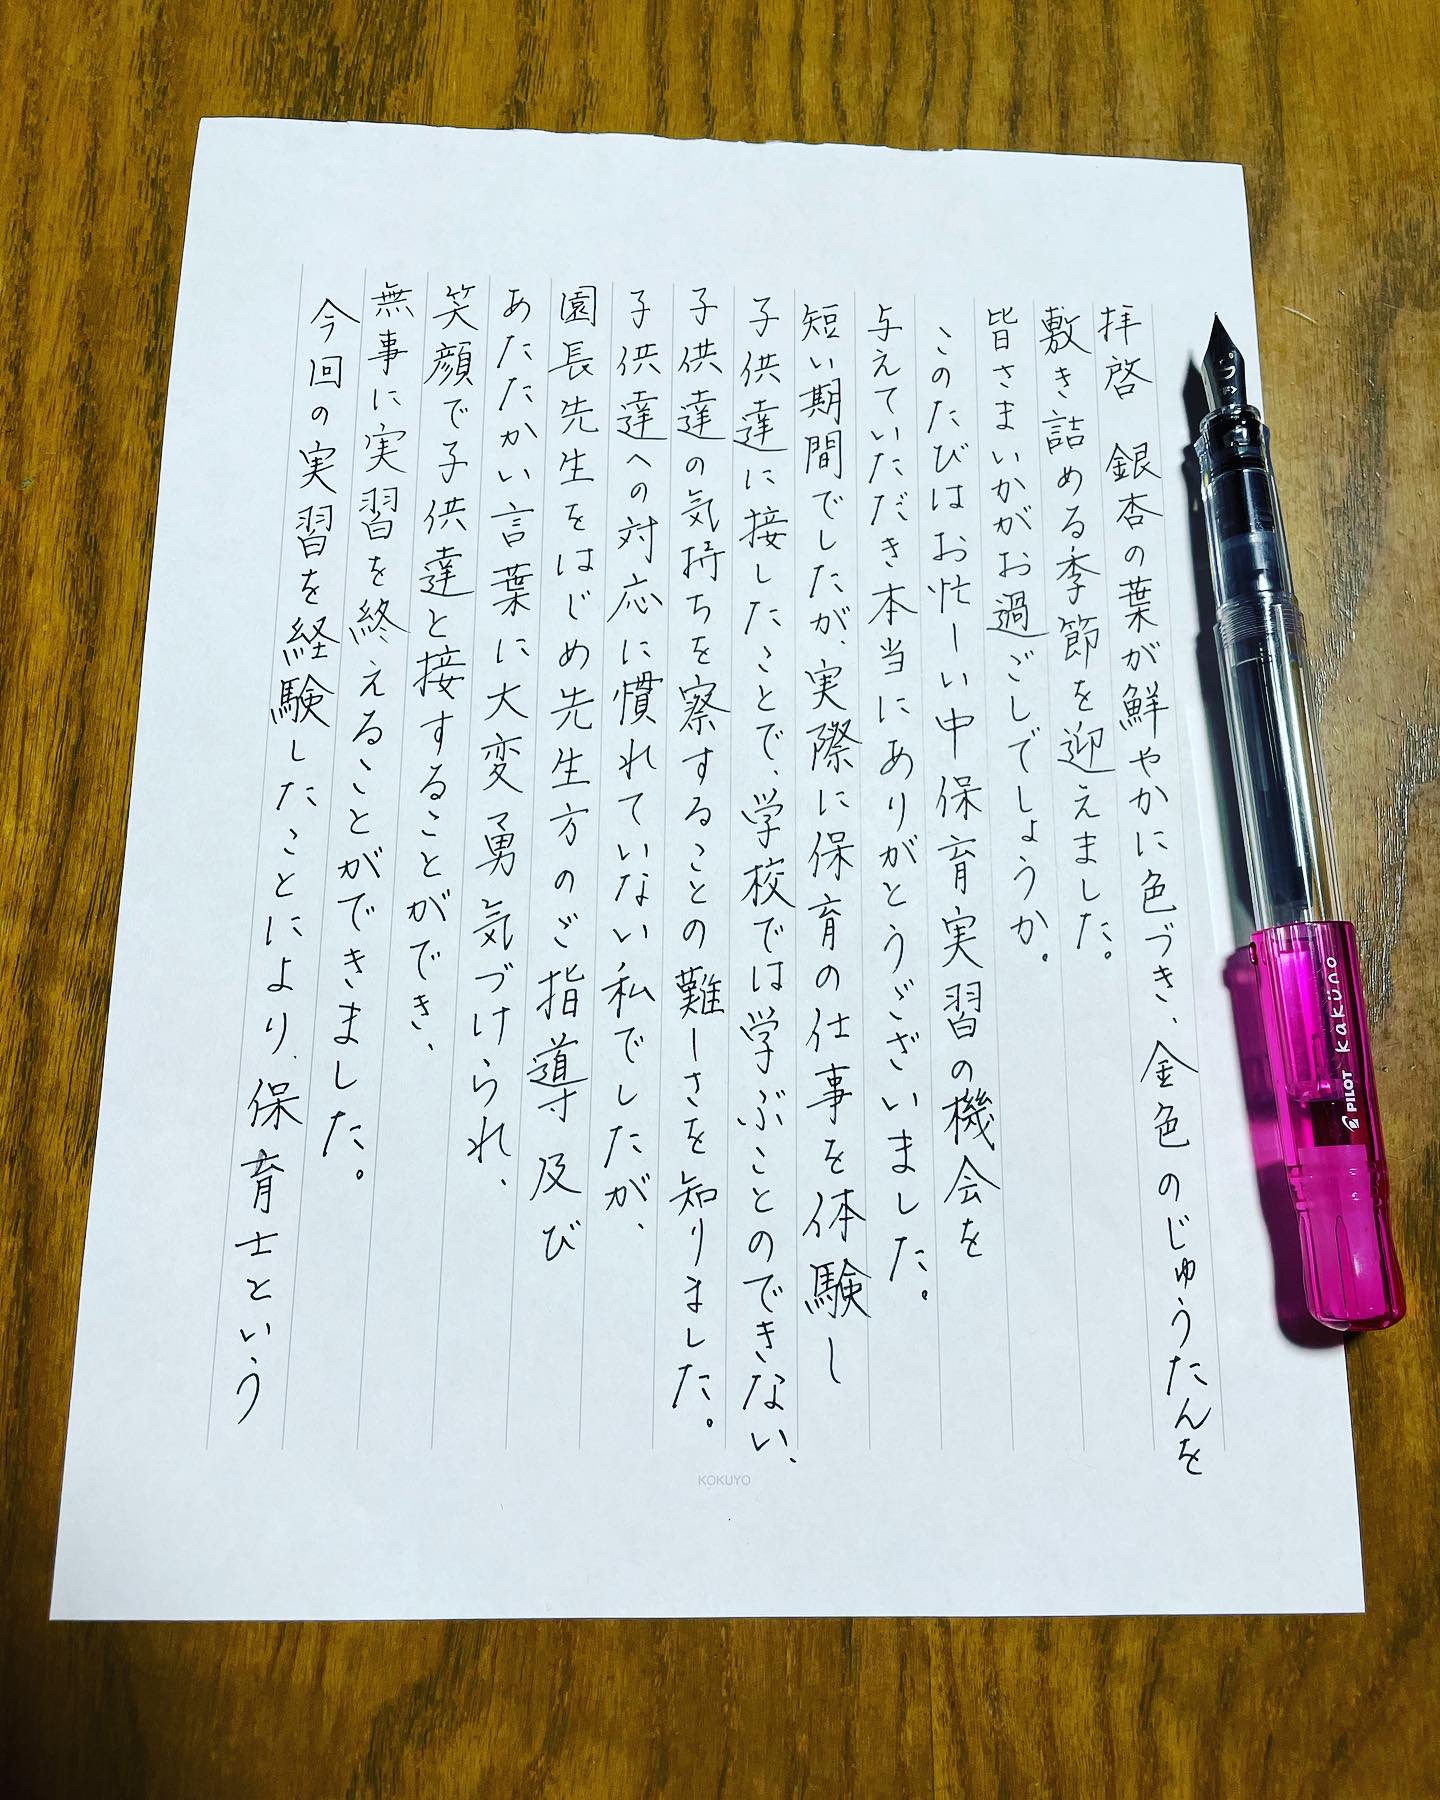 拝啓　銀杏の葉が鮮やかに色づき、金色のじゅうたんを
敷き詰める季節を迎えました。
皆さまいかがお過ごしでしょうか。
このたびはお忙しい中保育実習の機会を
与えていただき本当にありがとうございました。
短い期間でしたが、実際に保育の仕事を体験し
子供達に接したことで、学校では学ぶことのできない、
子供達の気持ちを察することの難しさを知りました。
子供達への対応に慣れていない私でしたが、
園長先生をはじめ先生方のご指導及び
あたたかい言葉に大変勇気づけられ、
笑顔で子供達と接することができ、
無事に実習を終えることができました。
今回の実習を経験したことにより、保育士という
KOKUYO
PILOT kaküno